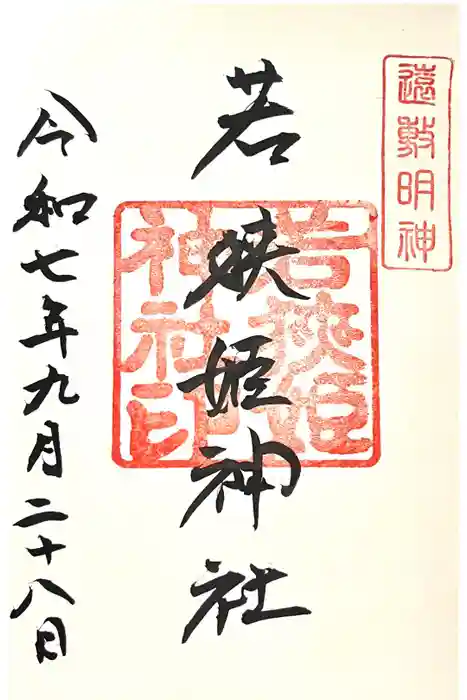 遠敷明神
若狭姫神社
若狭姫神社印
令和七年九月二十八日